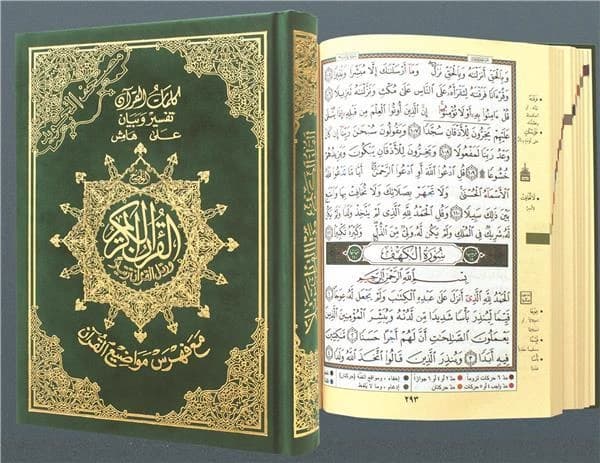 مصحف التجويد
كلمات القرآن
تفسير وبيان
على هامش
القرآن الكريم
ورتل القرآن ترتيلا
مع فهرس مواضيع القرآن
وَبِالْحَقِّ أَنزَلْنَٰهُ وَبِالْحَقِّ نَزَلَ وَمَا أَرْسَلْنَٰكَ إِلَّا مُبَشِّرًا وَنَذِيرًا ١٠٥
وَقُرْءَانًا فَرَقْنَٰهُ لِتَقْرَأَهُ عَلَى النَّاسِ عَلَىٰ مُكْثٍ وَنَزَّلْنَٰهُ تَنزِيلًا ١٠٦
قُلْ ءَامِنُوا بِهِ أَوْ لَا تُؤْمِنُوا إِنَّ الَّذِينَ أُوتُوا الْعِلْمَ مِن قَبْلِهِ إِذَا يُتْلَىٰ
عَلَيْهِمْ يَخِرُّونَ لِلْأَذْقَانِ سُجَّدًا ١٠٧ وَيَقُولُونَ سُبْحَٰنَ رَبِّنَا إِن كَانَ
وَعْدُ رَبِّنَا لَمَفْعُولًا ١٠٨ وَيَخِرُّونَ لِلْأَذْقَانِ يَبْكُونَ وَيَزِيدُهُمْ
خُشُوعًا ١٠٩ قُلِ ادْعُوا اللَّهَ أَوِ ادْعُوا الرَّحْمَٰنَ أَيًّا مَّا تَدْعُوا فَلَهُ
الْأَسْمَاءُ الْحُسْنَىٰ وَلَا تَجْهَرْ بِصَلَاتِكَ وَلَا تُخَافِتْ بِهَا وَابْتَغِ
بَيْنَ ذَٰلِكَ سَبِيلًا ١١٠ وَقُلِ الْحَمْدُ لِلَّهِ الَّذِي لَمْ يَتَّخِذْ وَلَدًا وَلَمْ يَكُن لَّهُ
شَرِيكٌ فِي الْمُلْكِ وَلَمْ يَكُن لَّهُ وَلِيٌّ مِّنَ الذُّلِّ وَكَبِّرْهُ تَكْبِيرًا ١١١
سُورَةُ الْكَهْفِ
بِسْمِ اللَّهِ الرَّحْمَٰنِ الرَّحِيمِ
الْحَمْدُ لِلَّهِ الَّذِي أَنزَلَ عَلَىٰ عَبْدِهِ الْكِتَٰبَ وَلَمْ يَجْعَل لَّهُ عِوَجًا ١
قَيِّمًا لِّيُنذِرَ بَأْسًا شَدِيدًا مِّن لَّدُنْهُ وَيُبَشِّرَ الْمُؤْمِنِينَ الَّذِينَ
يَعْمَلُونَ الصَّٰلِحَٰتِ أَنَّ لَهُمْ أَجْرًا حَسَنًا ٢ مَّٰكِثِينَ
فِيهِ أَبَدًا ٣ وَيُنذِرَ الَّذِينَ قَالُوا اتَّخَذَ اللَّهُ وَلَدًا ٤
٢٩٣